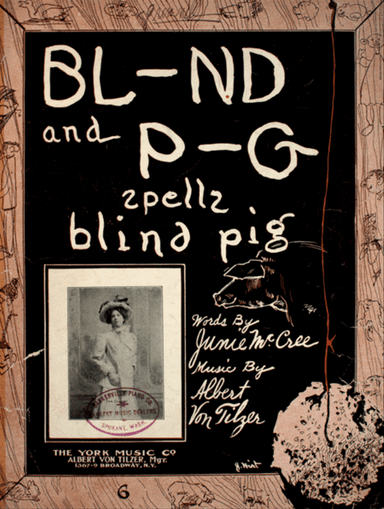 BL-ND
and P-G
spells
blind pig
Words By
Junie Mc Cree
Music By
Albert
Von Tilzer
PIANO CO.
SPOKANE, WASH.
THE YORK MUSIC CO
ALBERT VON TILZER, Mgr.
1367-9 BROADWAY, N.Y.
6